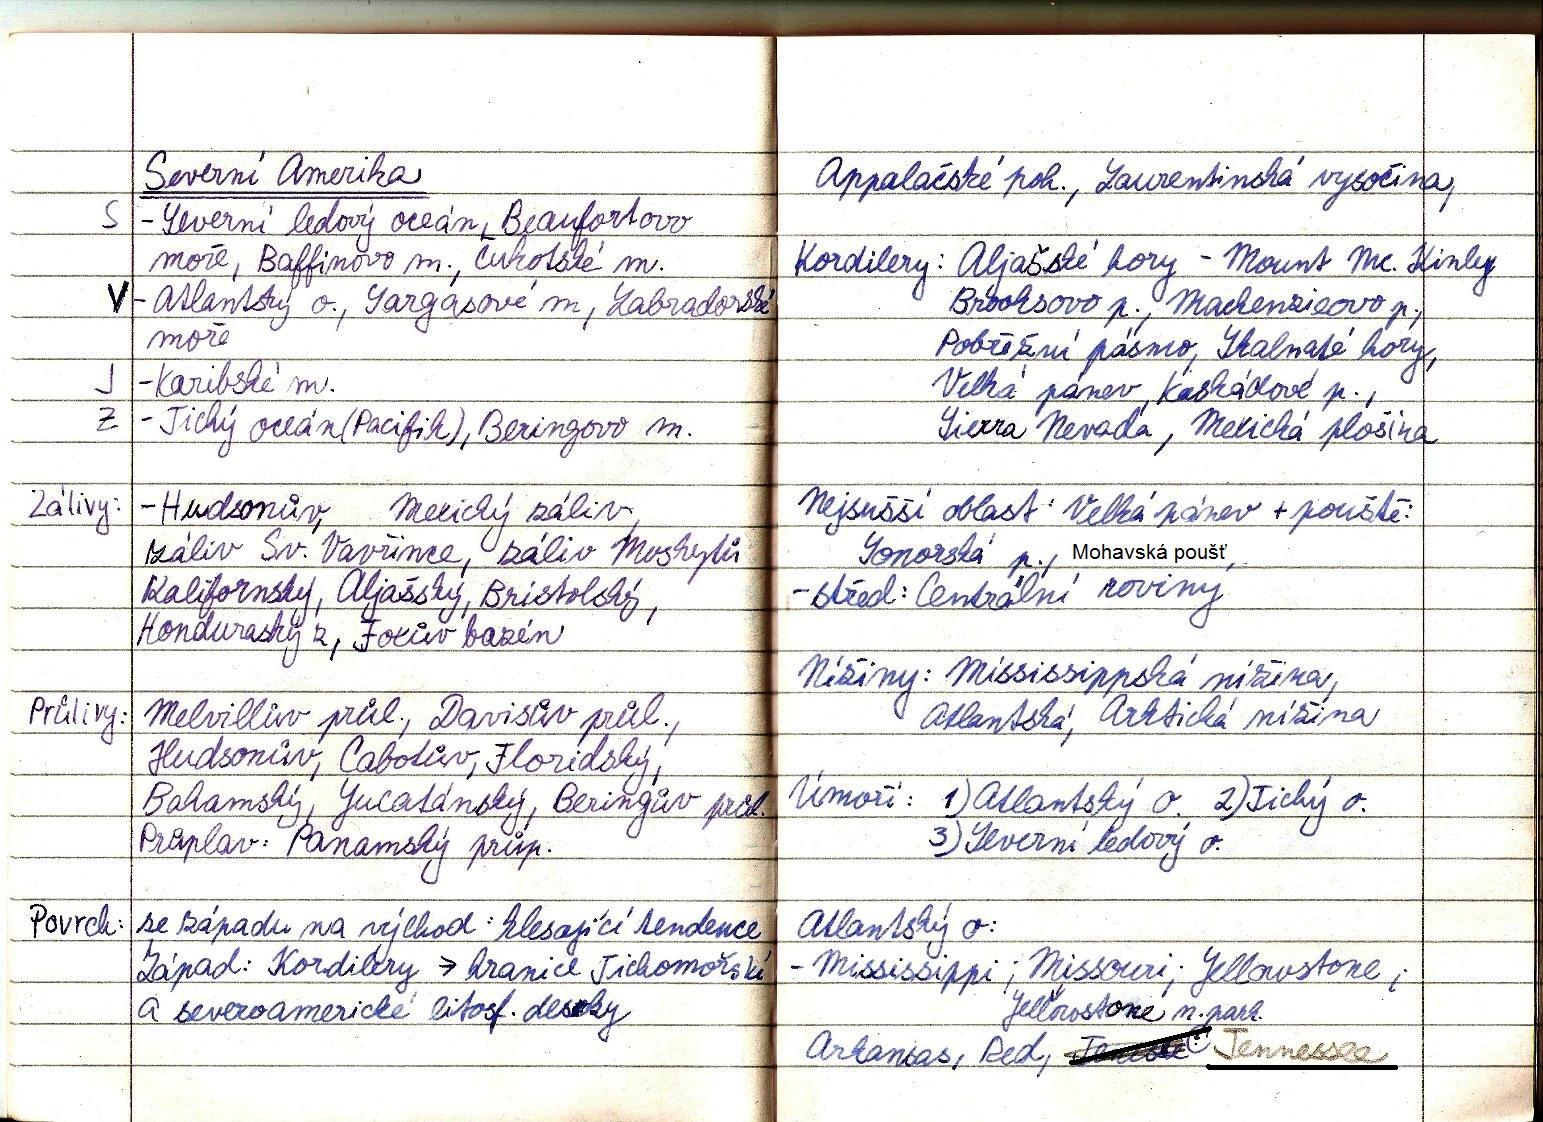 Severní Amerika
S - Severní ledový oceán, Beaufortovo
moře, Baffinovo m., Čukotské m.
V - Atlantský o., Sargasové m., Labradorské
moře
J - Karibské m.
Z - Tichý oceán (Pacifik), Beringovo m.
Zálivy: - Hudsonův, Mexický záliv,
záliv Sv. Vavřince, záliv Moskytů
Kalifornský, Aljašský, Bristolský,
Honduraský z, Foxův bazén
Průlivy: Melvillův průl., Davisův průl.,
Hudsonův, Cabotův, Floridský,
Bahamský, Yucatánský, Beringův průl.
Průplav: Panamský průp.
Povrch: ze západu na východ: klesající tendence
Západ: Kordiléry → hranice Tichomořské
a severoamerické litosf. desky
Appalačské poh., Laurentinská vysočina,
Kordilery: Aljašské hory - Mount Mc. Kinley
Brooksovo p., Mackenzieovo p.,
Pobřežní pásmo, Skalnaté hory,
Velká pánev, Kaskádové p.,
Sierra Nevada, Mexická plošina
Nejsušší oblast: Velká pánev + pouště:
Sonorská p., Mohavská poušť,
- střed: Centrální roviny
Nížiny: Mississippská nížina,
Atlantská, Arktická nížina
Úmoří: 1) Atlantský o. 2) Tichý o.
3) Severní ledový o.
Atlantský o:
- Mississippi; Missouri; Yellowstone;
Yellowstone n. park.
Arkansas, Red, Tennessee